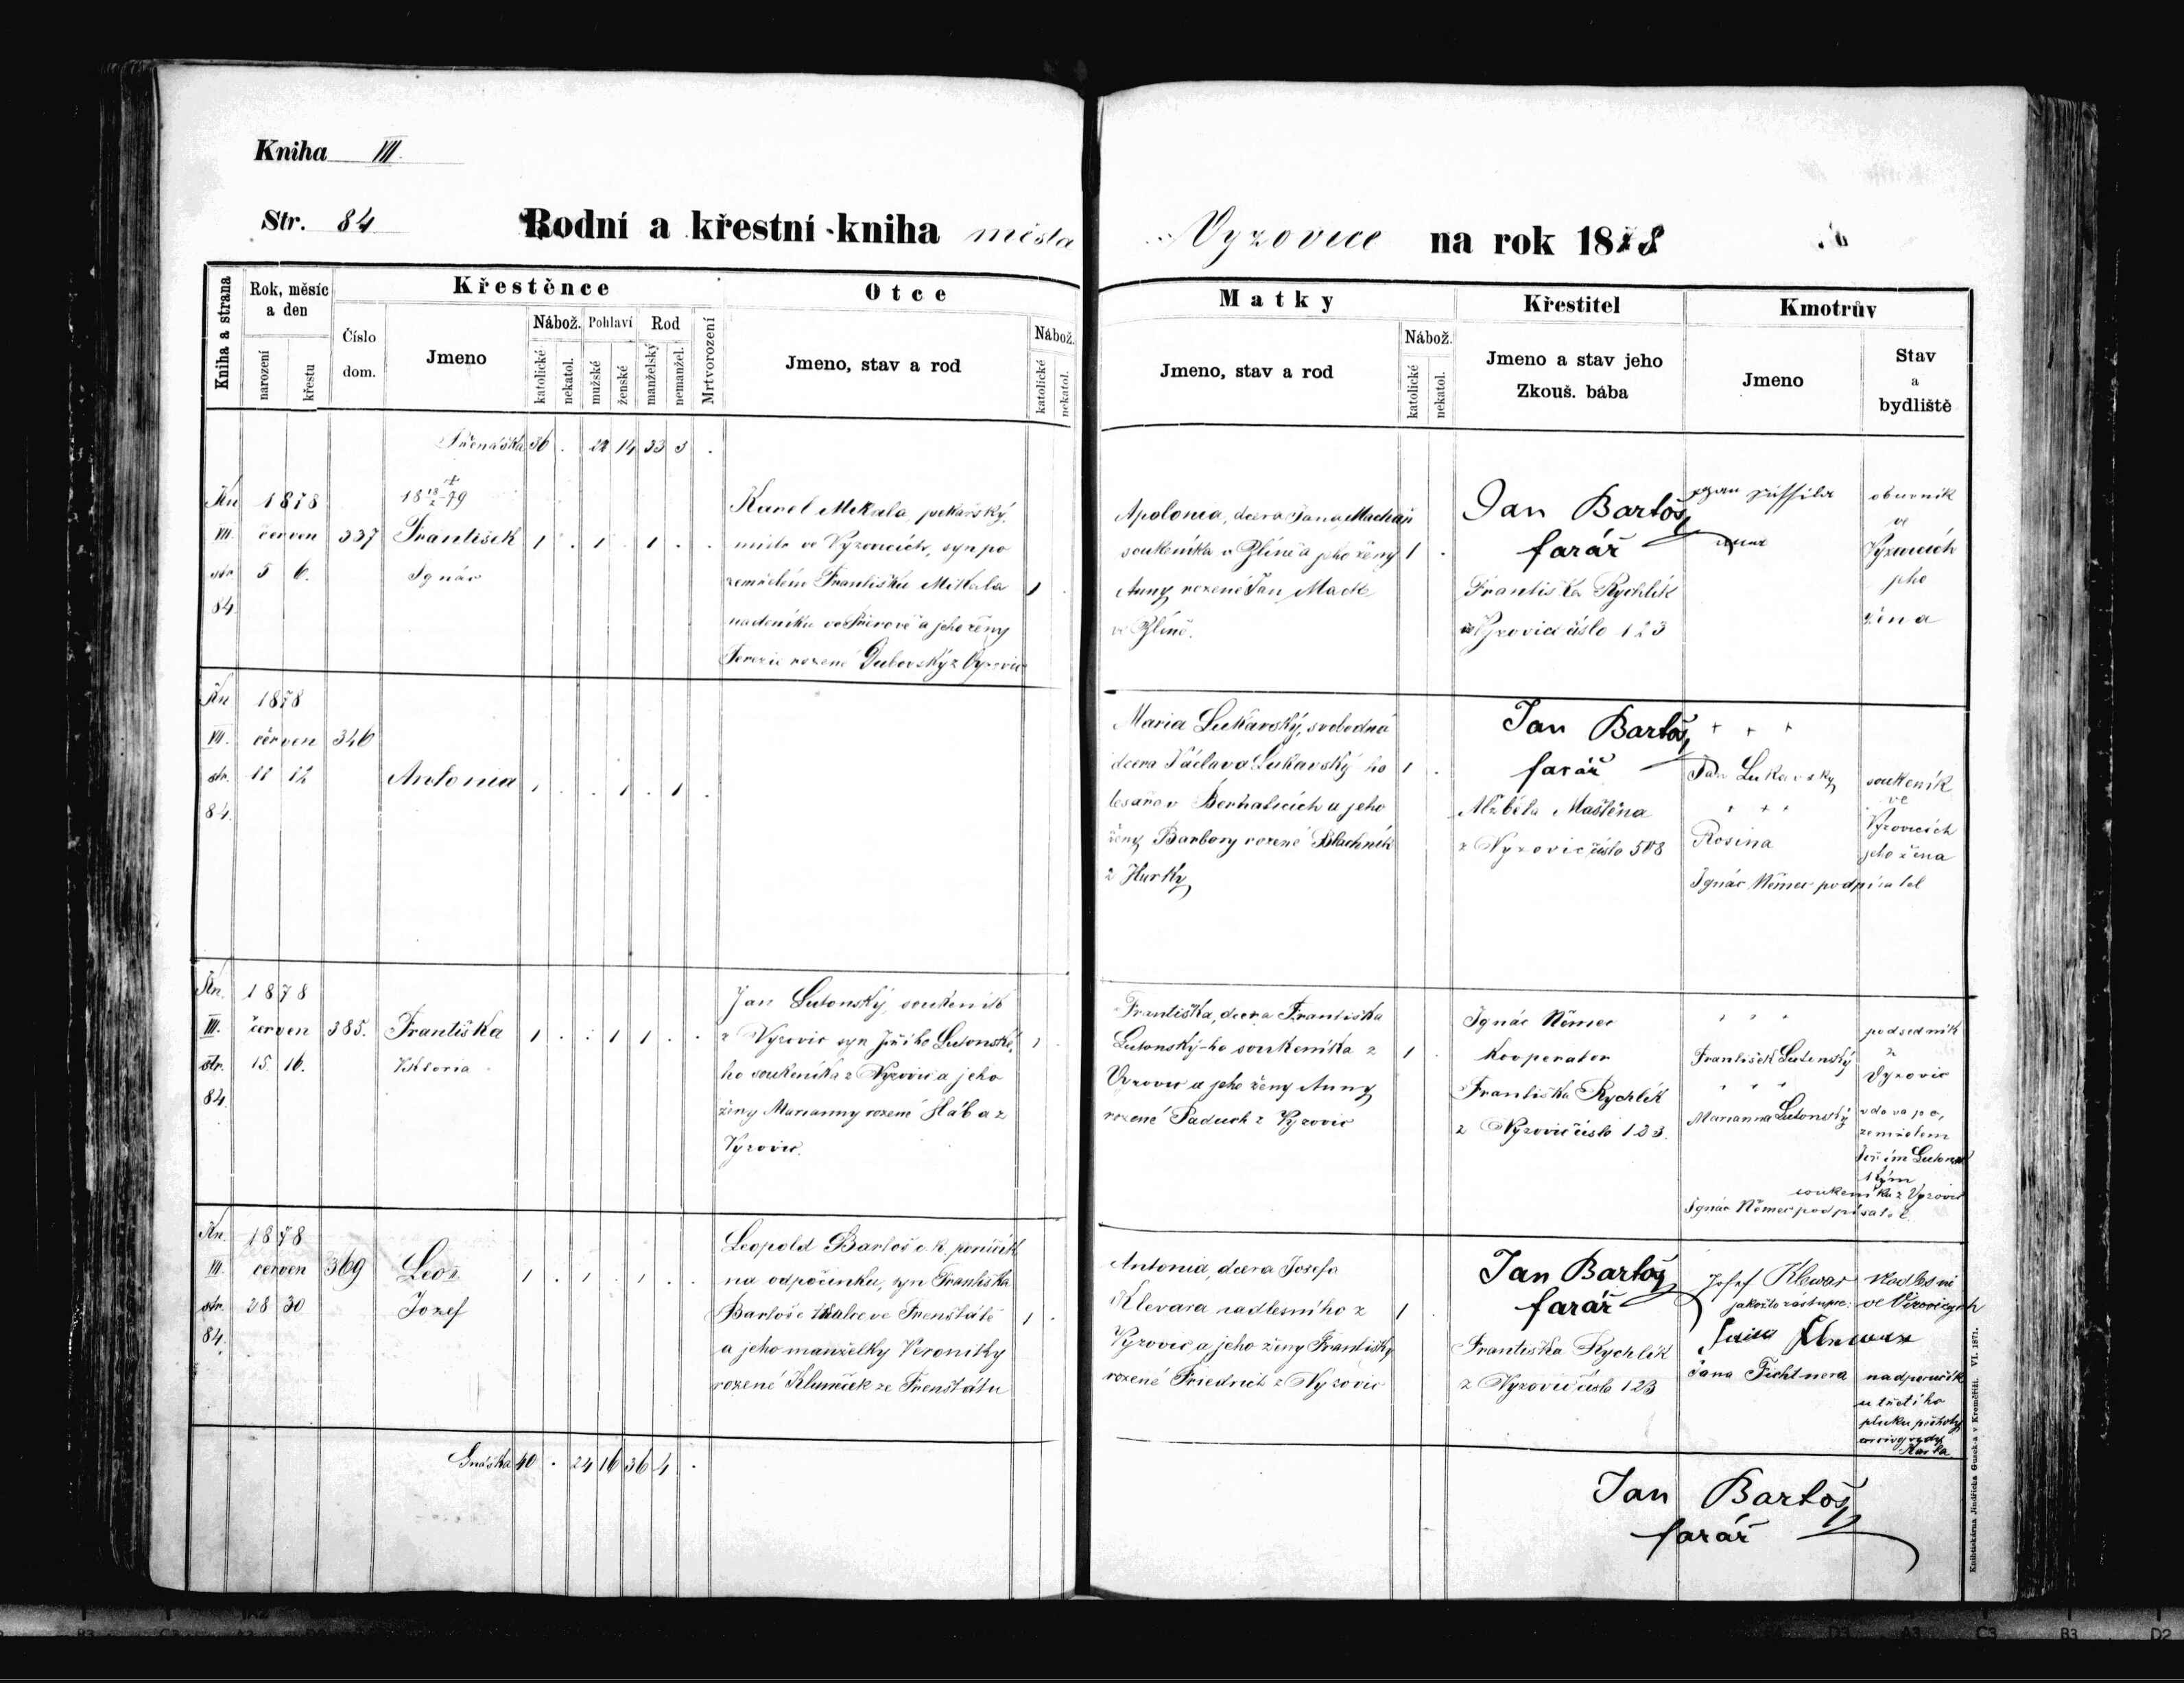 Kniha VII.
Str. 84 Rodní a křestní kniha města Vyzovice na rok 1878
Kniha a strana
Rok, měsíc a den
narození
křestu
Číslo dom.
Křestěnce
Jmeno
Nábož.
katolické
nekatol.
Pohlaví
mužské
ženské
Rod
manželský
nemanžel.
Mrtvorození
Otce
Jmeno, stav a rod
Nábož.
katolické
nekatol.
Matky
Jmeno, stav a rod
Nábož.
katolické
nekatol.
Křestitel
Jmeno a stav jeho
Zkouš. bába
Kmotrův
Jmeno
Stav
a
bydliště
36 . 22 14 33 3 .
Kn
VII.
str.
84.
1878
červen
5 6.
337
František
Ignác
1 . 1 . 1 . .
Karel Mikala, pekařský
mistr ve Vyzovicích, syn po
zemřelém Františku Mikala
nadeníku ve Přerově a jeho ženy
Terezie rozené Dubovský z Vyzovic
1 .
Apolonia, dcera Jana Machař
soukeníka v Zlíně a jeho ženy
Anny rozené Jan Mack
ve Zlíně.
1 .
Jan Bartoš,
farář
Františka Rychlík
z Vyzovic číslo 123
obuvník
ve
Vyzovicích
jeho
žena
Kn
VII.
str.
84.
1878
červen
11 12
346
Antonia
1 . . 1 . 1 .
Maria Lukavský, svobodná
dcera Václava Lukavský ho
tesaře v Berhaticích a jeho
ženy Barbory rozené Blachník
z Hurky
1 .
Jan Bartoš,
farář
Alžběta Maštěna
z Vyzovic číslo 508
+ + +
Jan Lukavský
+ + +
Rosina
Ignác Němec podpisatel
soukeník
ve
Vyzovicích
jeho žena
Kn.
VII.
str.
84.
1878
červen
15. 16.
385.
Františka
Viktoria
1 . . 1 1 . .
Jan Lutonský, soukeník
z Vyzovic syn Jiřího Lutonské-
ho soukeníka z Vyzovic a jeho
ženy Marianny rozené Hába z
Vyzovic.
1 .
Františka, dcera Františka
Lutonský-ho soukeníka z
Vyzovic a jeho ženy Anny
rozené Paduch z Vyzovic
1 .
Ignác Němec
kooperator
Františka Rychlík
z Vyzovic číslo 123.
+ + +
František Lutonský
+ + +
Marianna Lutonský
podsedník
z
Vyzovic
vdova po
zemřelem
Jiřím Lutons
kým
soukeníku z Vyzovic
Ignác Němec podpisatel.
Kn.
VII.
str.
84.
1878
červen
28 30
369
Leo
Jozef
1 . 1 . 1 . .
Leopold Bartoš c. k. poručík
na odpočinku, syn Františka
Bartoše tkalce ve Frenštátě
a jeho manželky Veroniky
rozené Klumček ze Frenštátu
1 .
Antonia, dcera Josefa
Klevara nadlesního z
Vyzovic a jeho ženy Františky
rozené Friedrich z Vyzovic
1 .
Jan Bartoš
farář
Františka Rychlík
z Vyzovic číslo 123
Josef Klewar
jakožto zástupce:
Jana Fichtnera
nadlesní
ve Vizovicych
nadporučík
u třetího
pluku pěchoty
Karla
40 . 24 16 36 4 .
Jan Bartoš
farář
Knihtiskárna Jindřicha Gusek-a v Kroměříži. VI. 1871.